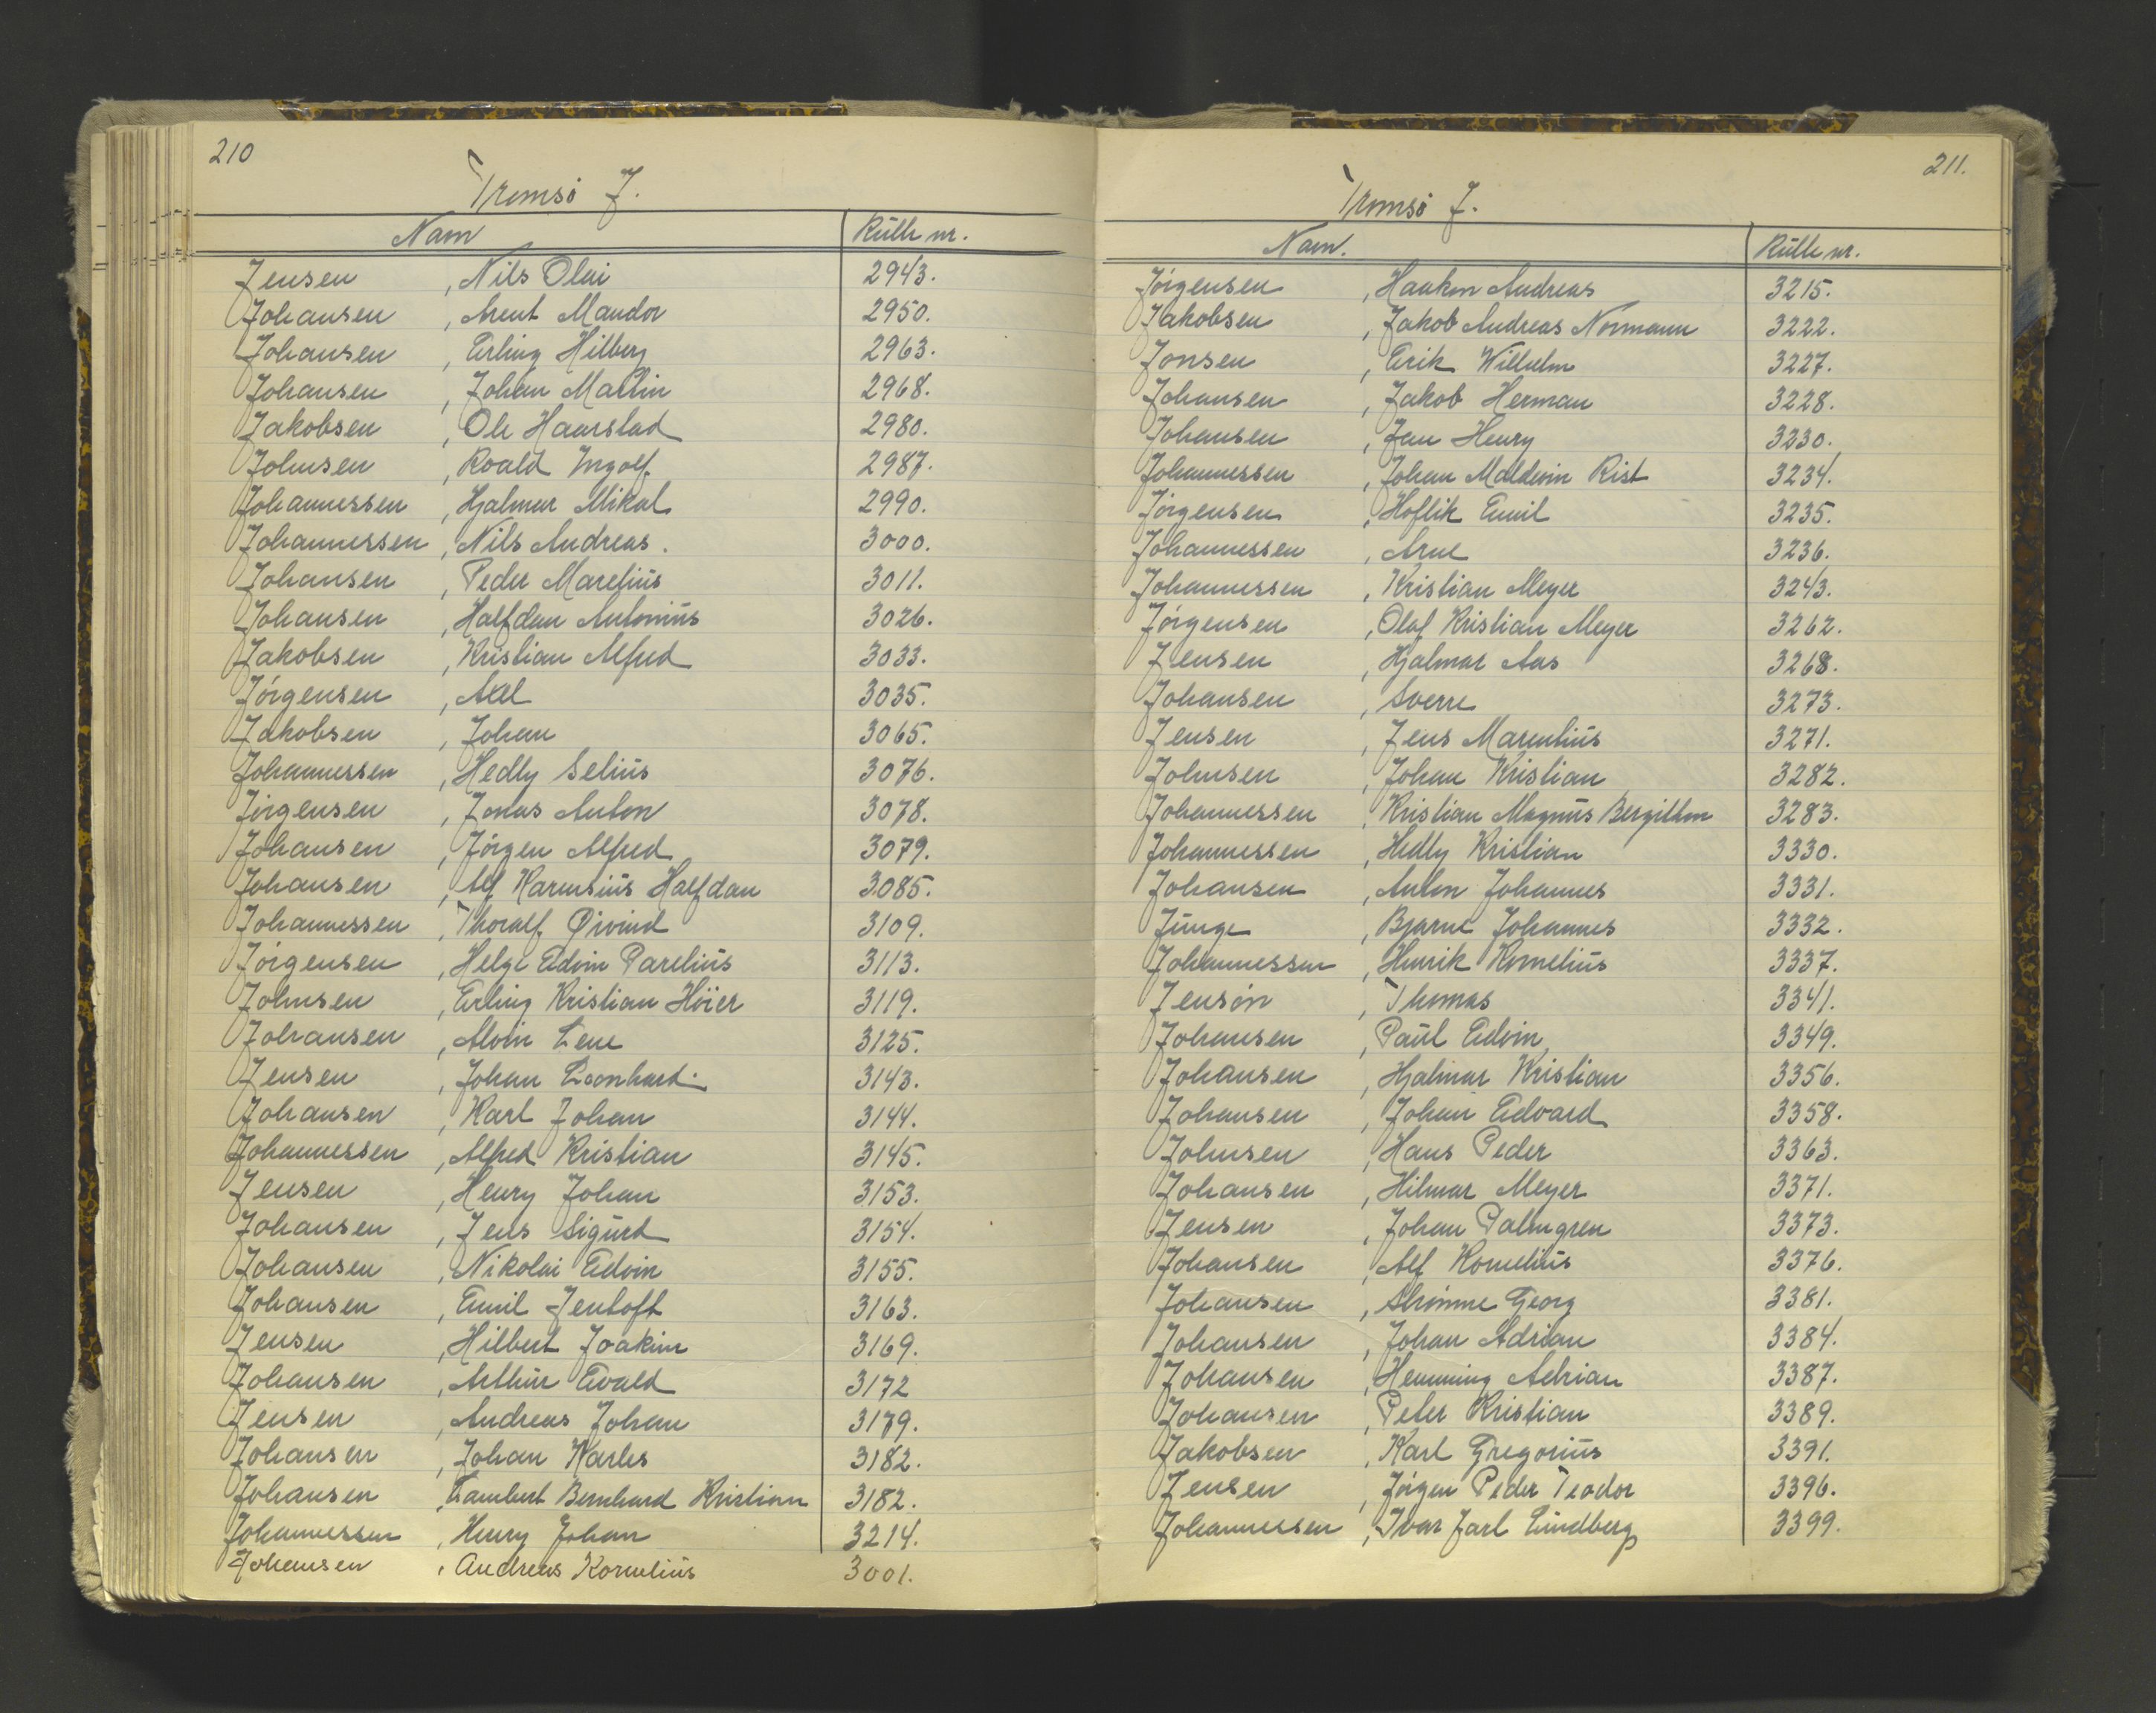 210
Tromsö J.
Navn Rülle nr.
Jensen , Nils Olai 2943.
Johansen , Arent Mandor 2950.
Johansen , Erling Hilberg 2963.
Johansen , Johan Martin 2968.
Jakobsen , Ole Haarstad 2980.
Johnsen , Roald Ingolf 2987.
Johannessen , Hjalmar Mikal 2990.
Johannessen , Nils Andreas. 3000.
Johansen , Peder Marelius 3011.
Johansen , Halfdan Antonius 3026.
Jakobsen , Kristian Alfred 3033.
Jörgensen , Axel 3035.
Jakobsen , Johan 3065.
Johannessen , Hedly Selius 3076.
Jörgensen , Jonas Anton 3078.
Johansen , Jörgen Alfred 3079.
Johansen , Alf Halfdan 3085.
Johannessen , Thoralf Øivind 3109.
Jörgensen , Helge Edvin Parelius 3113.
Johnsen , Erling Kristian Höier 3119.
Johansen , Alvin Lene 3125.
Jensen , Johan Leonhard. 3143.
Johansen , Karl Johan 3144.
Johannessen , Alfred Kristian 3145.
Jensen , Henry Johan 3153.
Johansen , Jens Sigurd 3154.
Johansen , Nikolai Edvin 3155.
Johansen , Emil Jentoft 3163.
Jensen , Hilbert Joakim 3169.
Johansen , Arthur Evald 3172
Jensen , Andreas Johan 3179.
Johansen , Johan Karles 3182.
Johansen , Lambert Bernhard Kristian 3182.
Johannessen , Henry Johan 3214.
Johansen , Andreas Kornelius 3001.
211.
Tromsö J.
Navn. Rülle nr.
Jörgensen , Haakon Andreas 3215.
Jakobsen , Jakob Andreas Normann 3222.
Jonsen , Erik Wilhelm 3227.
Johansen , Jakob Herman 3228.
Johansen , Jan Henry 3230.
Johannessen , Johan Maldevin Rist 3234.
Jörgensen , Hoflik Emil 3235.
Johannessen , Arne 3236.
Johannessen , Kristian Meyer 3243.
Jörgensen , Olaf Kristian Meyer 3262.
Jensen , Hjalmar Aas 3268.
Johansen , Sverre 3273.
Jensen , Jens Marenlius 3271.
Johnsen , Johan Kristian 3282.
Johannessen , Kristian Magnus Bergithon 3283.
Johannessen , Hedly Kristian 3330.
Johansen , Anton Johannes 3331.
Junge , Bjarne Johannes 3332.
Johannessen , Henrik Kornelius 3337.
Jensön , Thomas 3341.
Johansen , Paul Edvin 3349.
Johansen , Hjalmar Kristian 3356.
Johansen , Johan Edvard 3358.
Johnsen , Hans Peder 3363.
Johansen , Hilmar Meyer 3371.
Jensen , Johan Palmgren 3373.
Johansen , Alf Kornelius 3376.
Johansen , Georg 3381.
Johansen , Johan Adrian 3384.
Johansen , Henning Adrian 3387.
Johansen , Peter Kristian 3389.
Jakobsen , Karl Gregorius 3391.
Jensen , Jörgen Peder Teodor 3396.
Johannessen , Ivar Jarl Lindberg 3399.